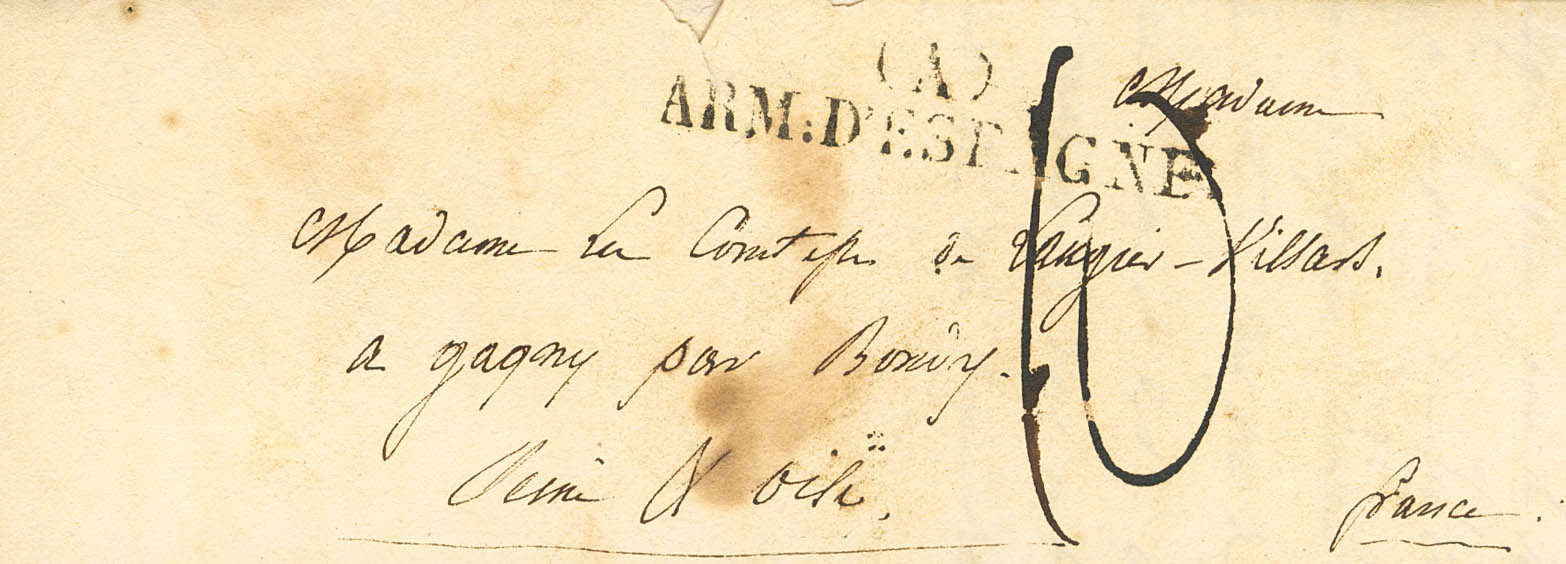 (A)
ARM: D'ESPAGNE
Madame
Madame La Comtesse de Laugier-Villars.
a gagny par Bondy.
Seine & Oise.
france.